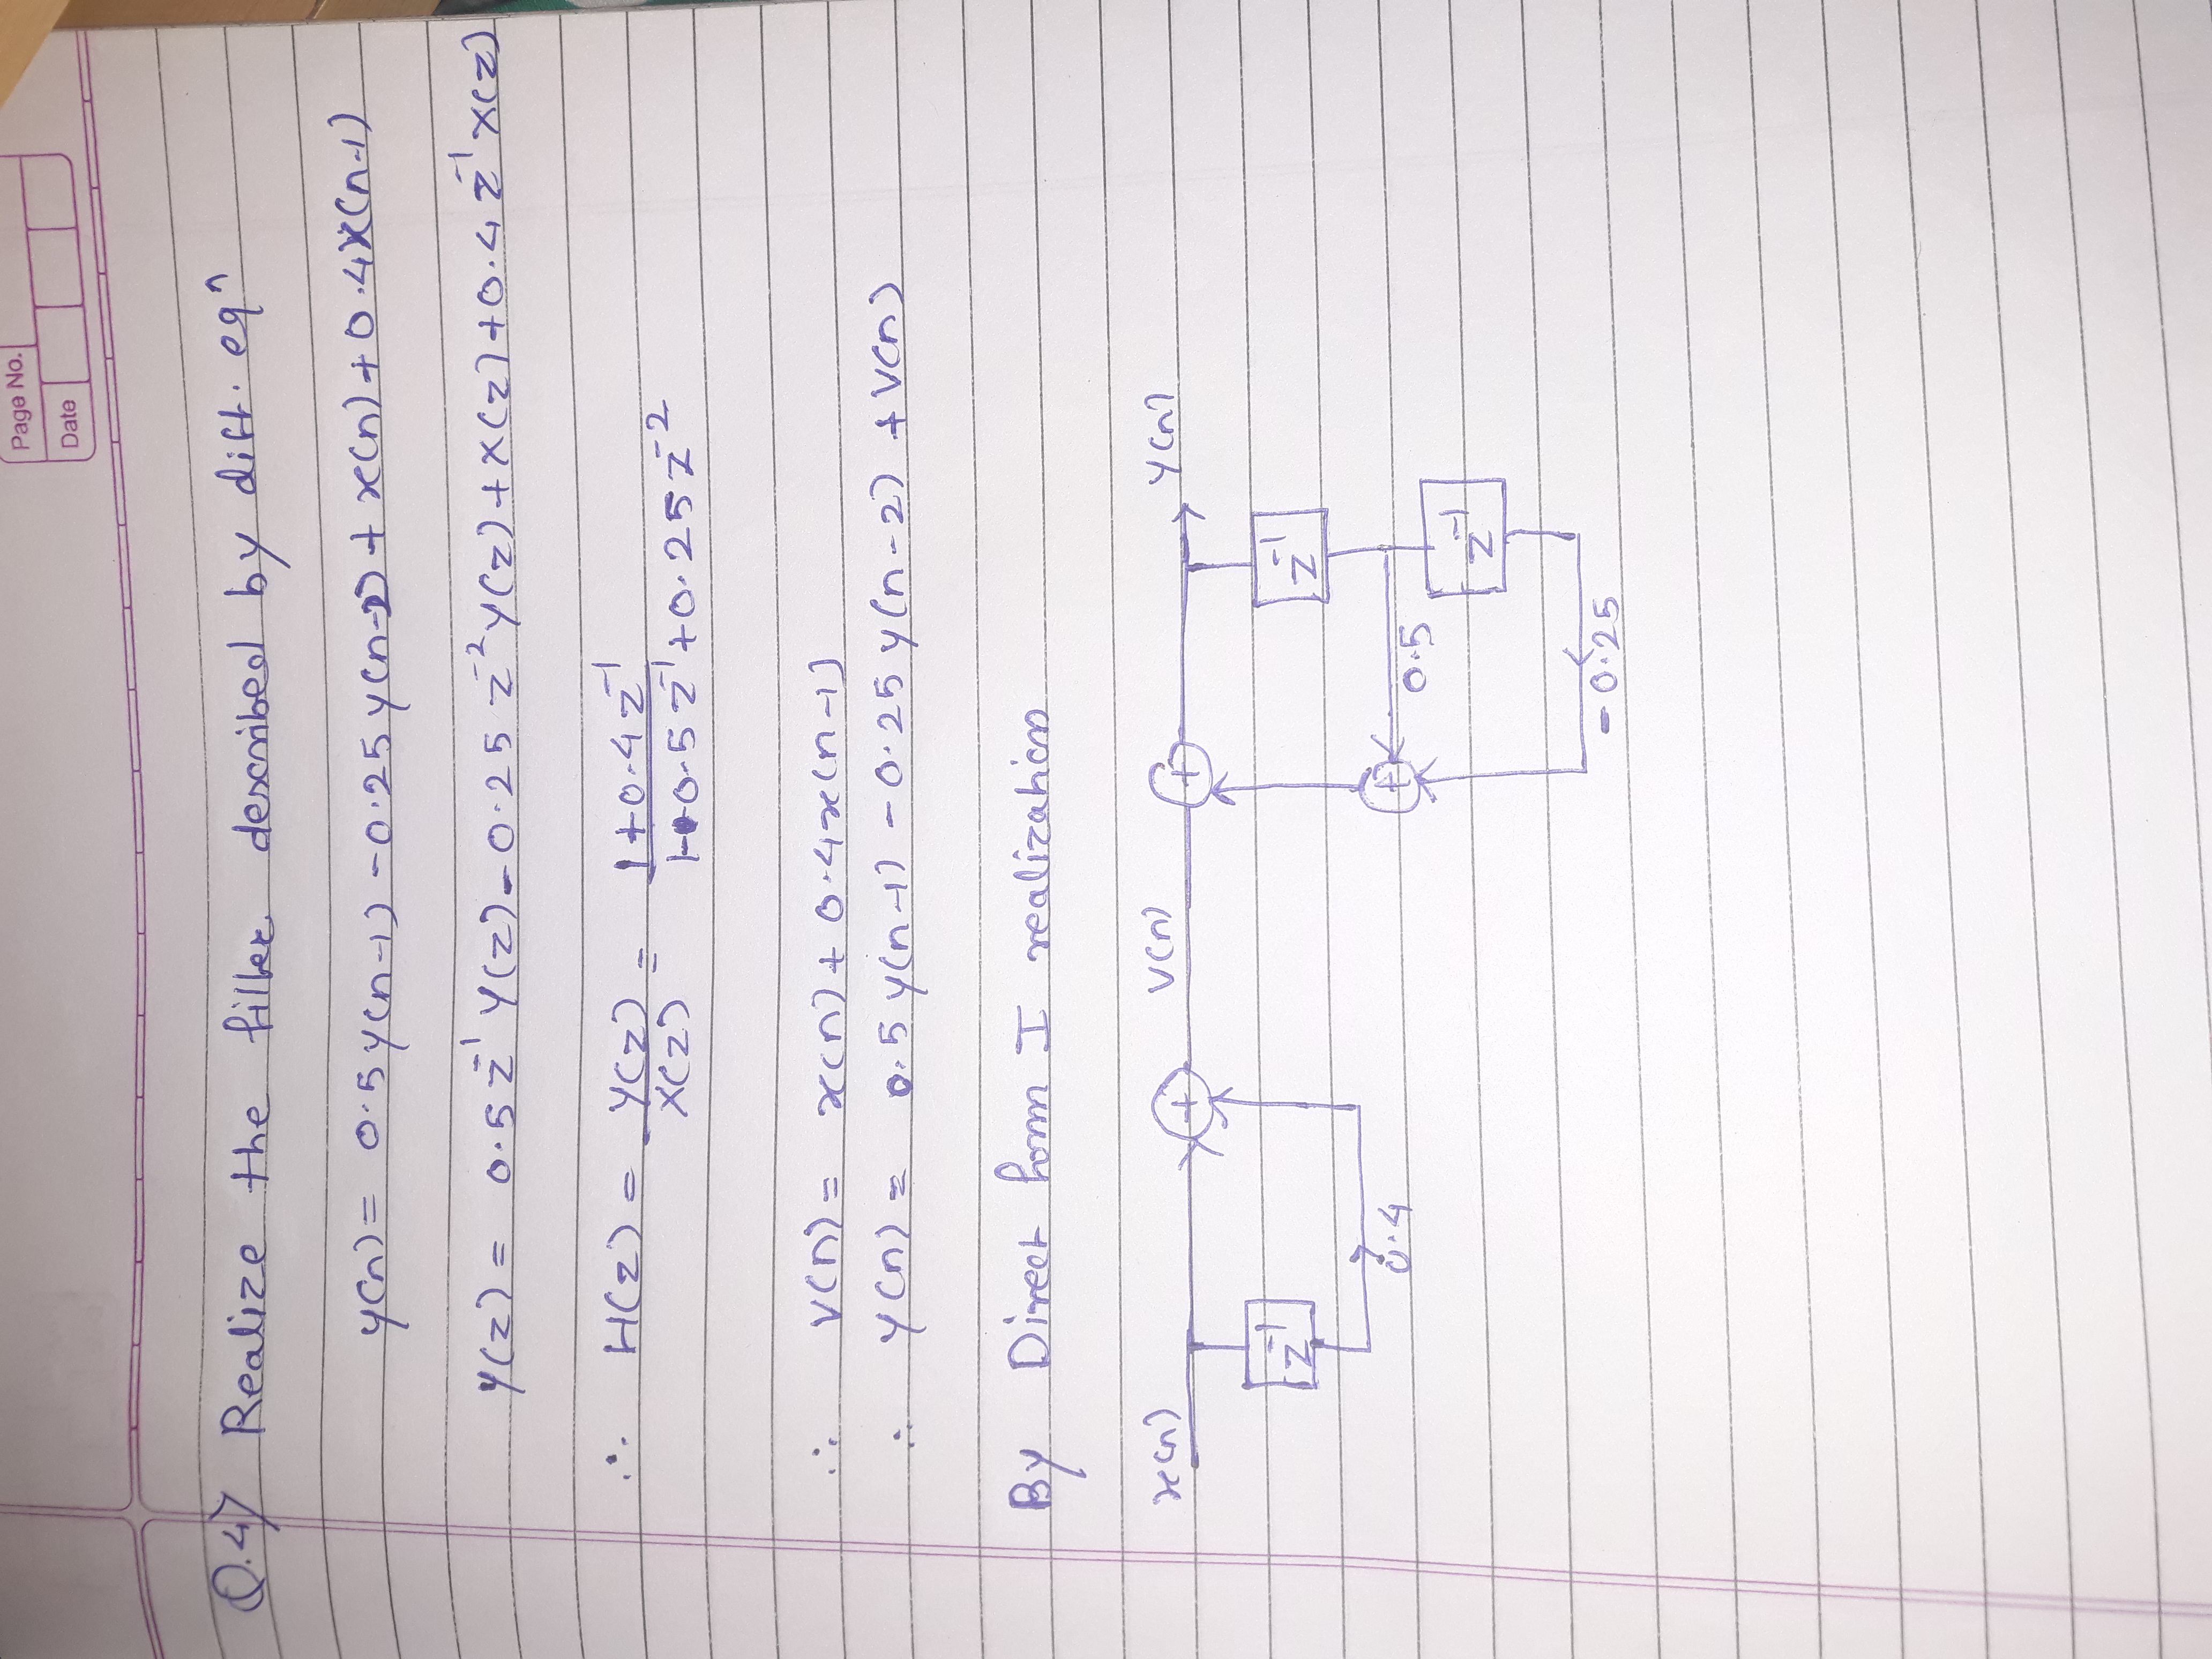 Page No.
Date
Q.4) Realize the filter described by diff. eqⁿ
y(n) = 0.5y(n-1) - 0.25y(n-2) + x(n) + 0.4x(n-1)
Y(z) = 0.5 z⁻¹ Y(z) - 0.25 z⁻² Y(z) + X(z) + 0.4 z⁻¹ X(z)
∴ H(z) = Y(z) / X(z) = 1+0.4z⁻¹ / 1-0.5z⁻¹+0.25z⁻²
∴ V(n) = x(n) + 0.4x(n-1)
∴ y(n) = 0.5y(n-1) - 0.25y(n-2) + V(n)
By Direct form I realization
x(n) + V(n) + y(n)
z⁻¹ z⁻¹
0.4 + 0.5
z⁻¹
-0.25